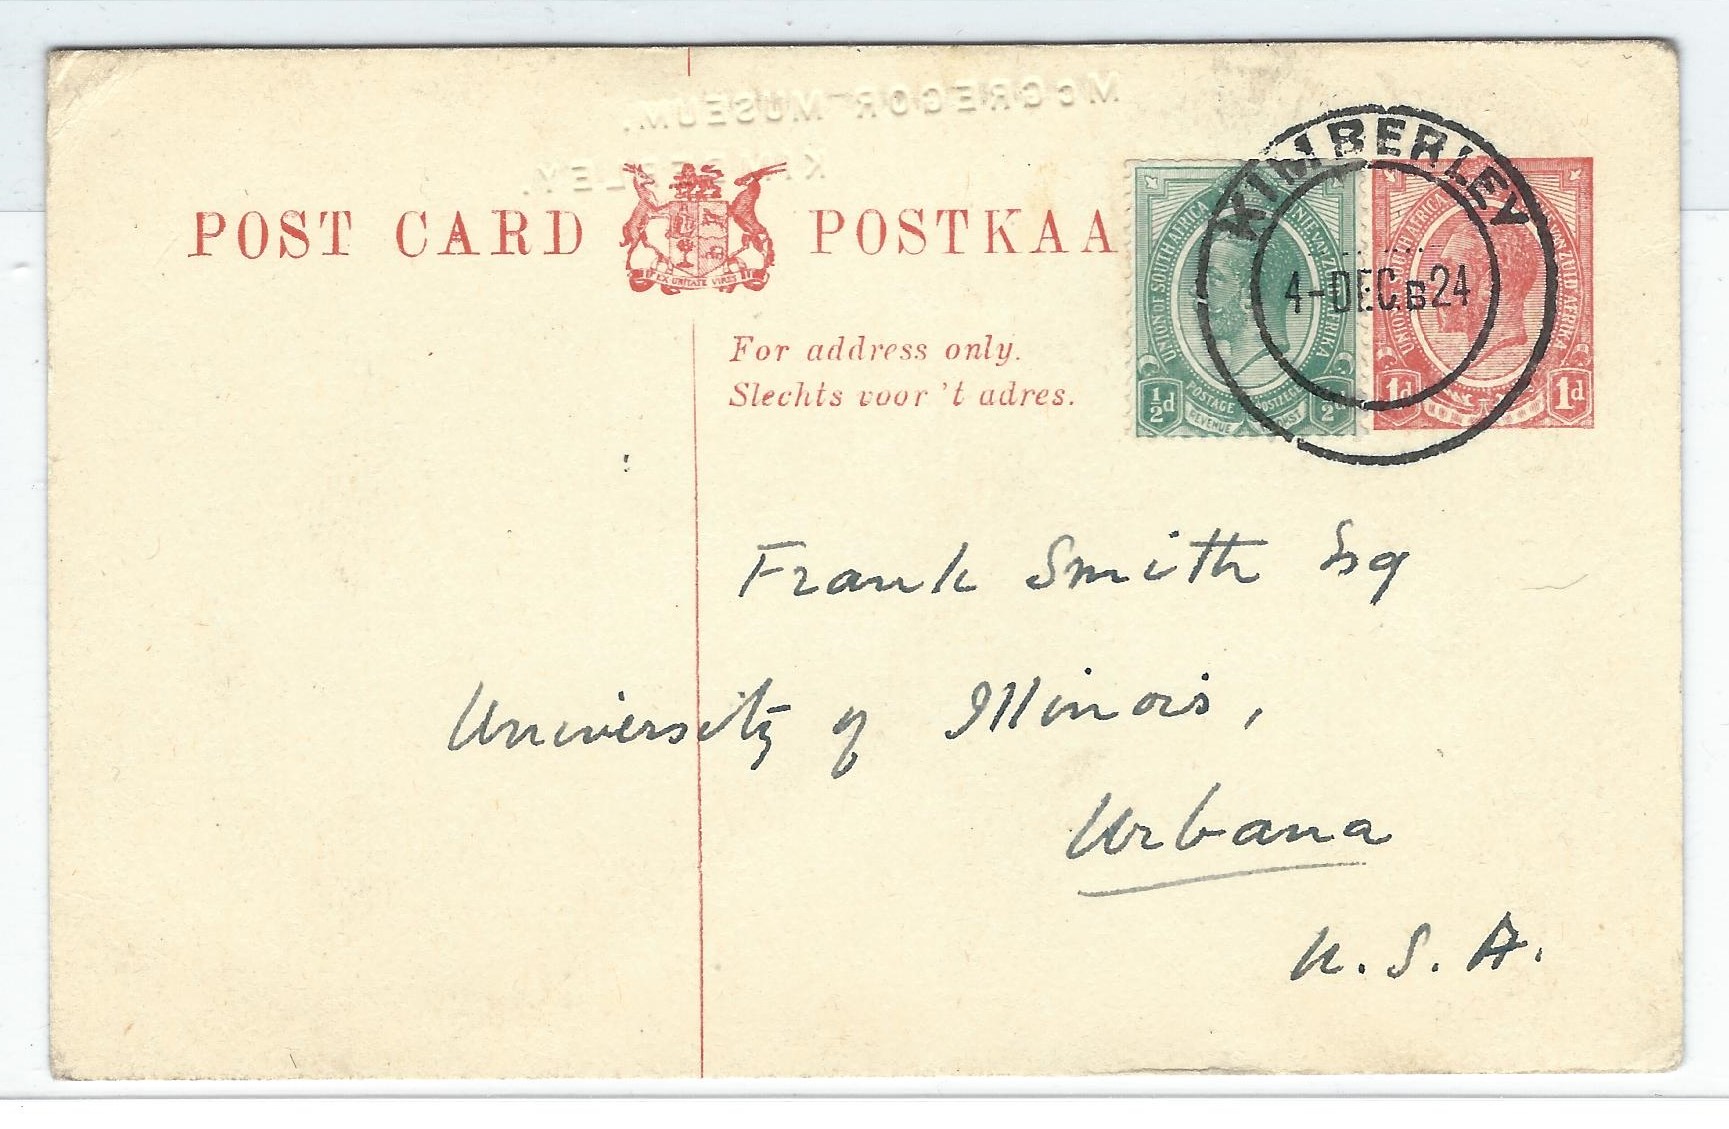 McGREGOR MUSEUM,
KIMBERLEY.
POST CARD POSTKAA
EX UNITATE VIRES
For address only.
Slechts voor 't adres.
UNION OF SOUTH AFRICA UNIE VAN ZUID AFRIKA
½d POSTAGE POSTZEGEL ½d
REVENUE
UNION OF SOUTH AFRICA VAN ZUID AFRIKA
1d 1d
KIMBERLEY
4-DEC B 24
Frank Smith Esq
University of Illinois,
Urbana
U.S.A.